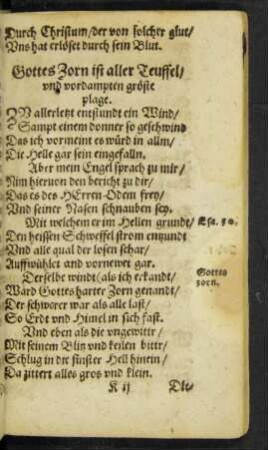 Durch Christum/der von solcher glut/
Vns hat erlöset durch sein Blut.
Gottes Zorn ist aller Teuffel/
vnd vordampten gröste
plage.
IN allerletzt entstundt ein Wind/
Sampt einem donner so geschwind
Das ich vormeint es würd in allm/
Die Helle gar sein eingefalln.
Aber mein Engel sprach zu mir/
Nim hieruon den bericht zu dir/
Das es des HErren Odem frey/
Vnd seiner Nasen schnauben sey.
Mit welchem er im Hellen grundt/
Esa. 30.
Den heissen Schweffel strom enzundt
Vnd alle qual der losen schar/
Auffwühlet und vornewet gar.
Gottes
zorn.
Derselbe windt (als ich erkandt/
Ward Gottes harter Zorn genandt/
Der schwerer war als alle last/
So Erdt vnd Himel in sich fast.
Vnd eben als die vngewittr/
Mit seinem Blin vnd keilen bittr/
Schlug in die finster Hell hinein/
Da zittert alles gros vnd klein.
K ij
Die